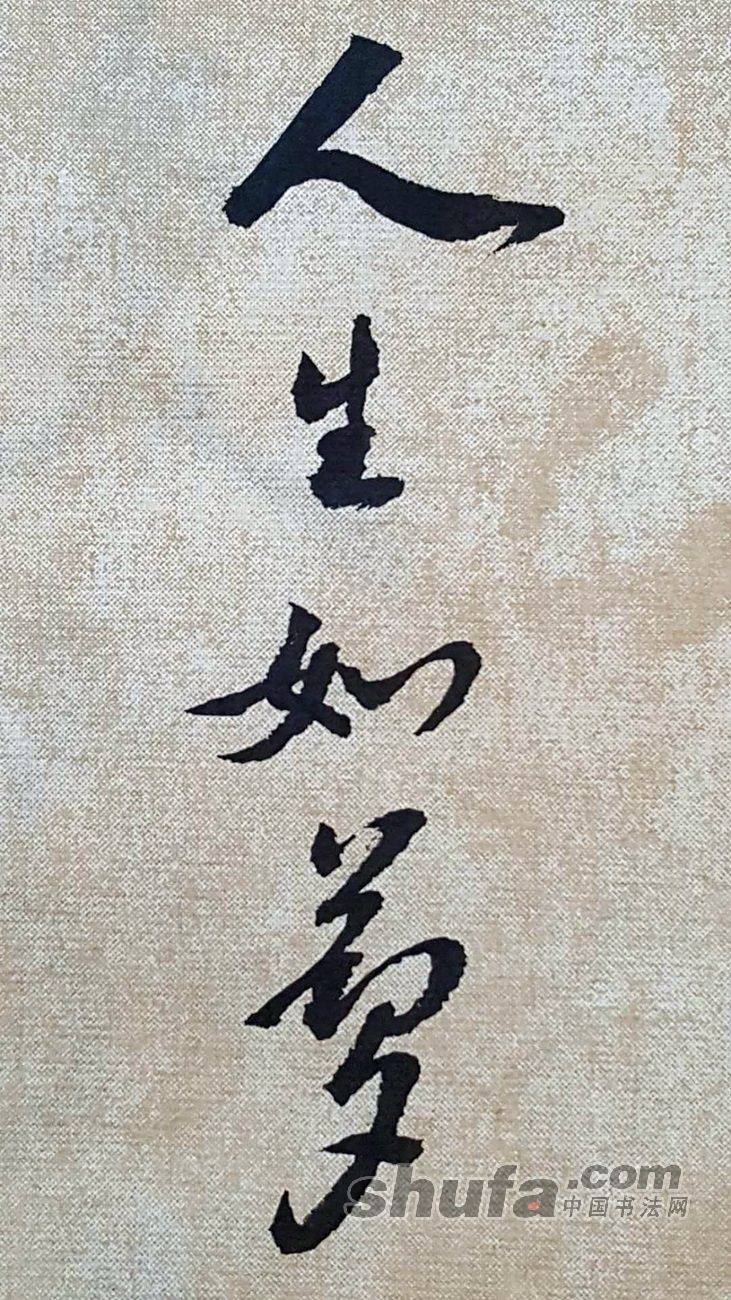 人生如夢
shufa.com
中国书法网